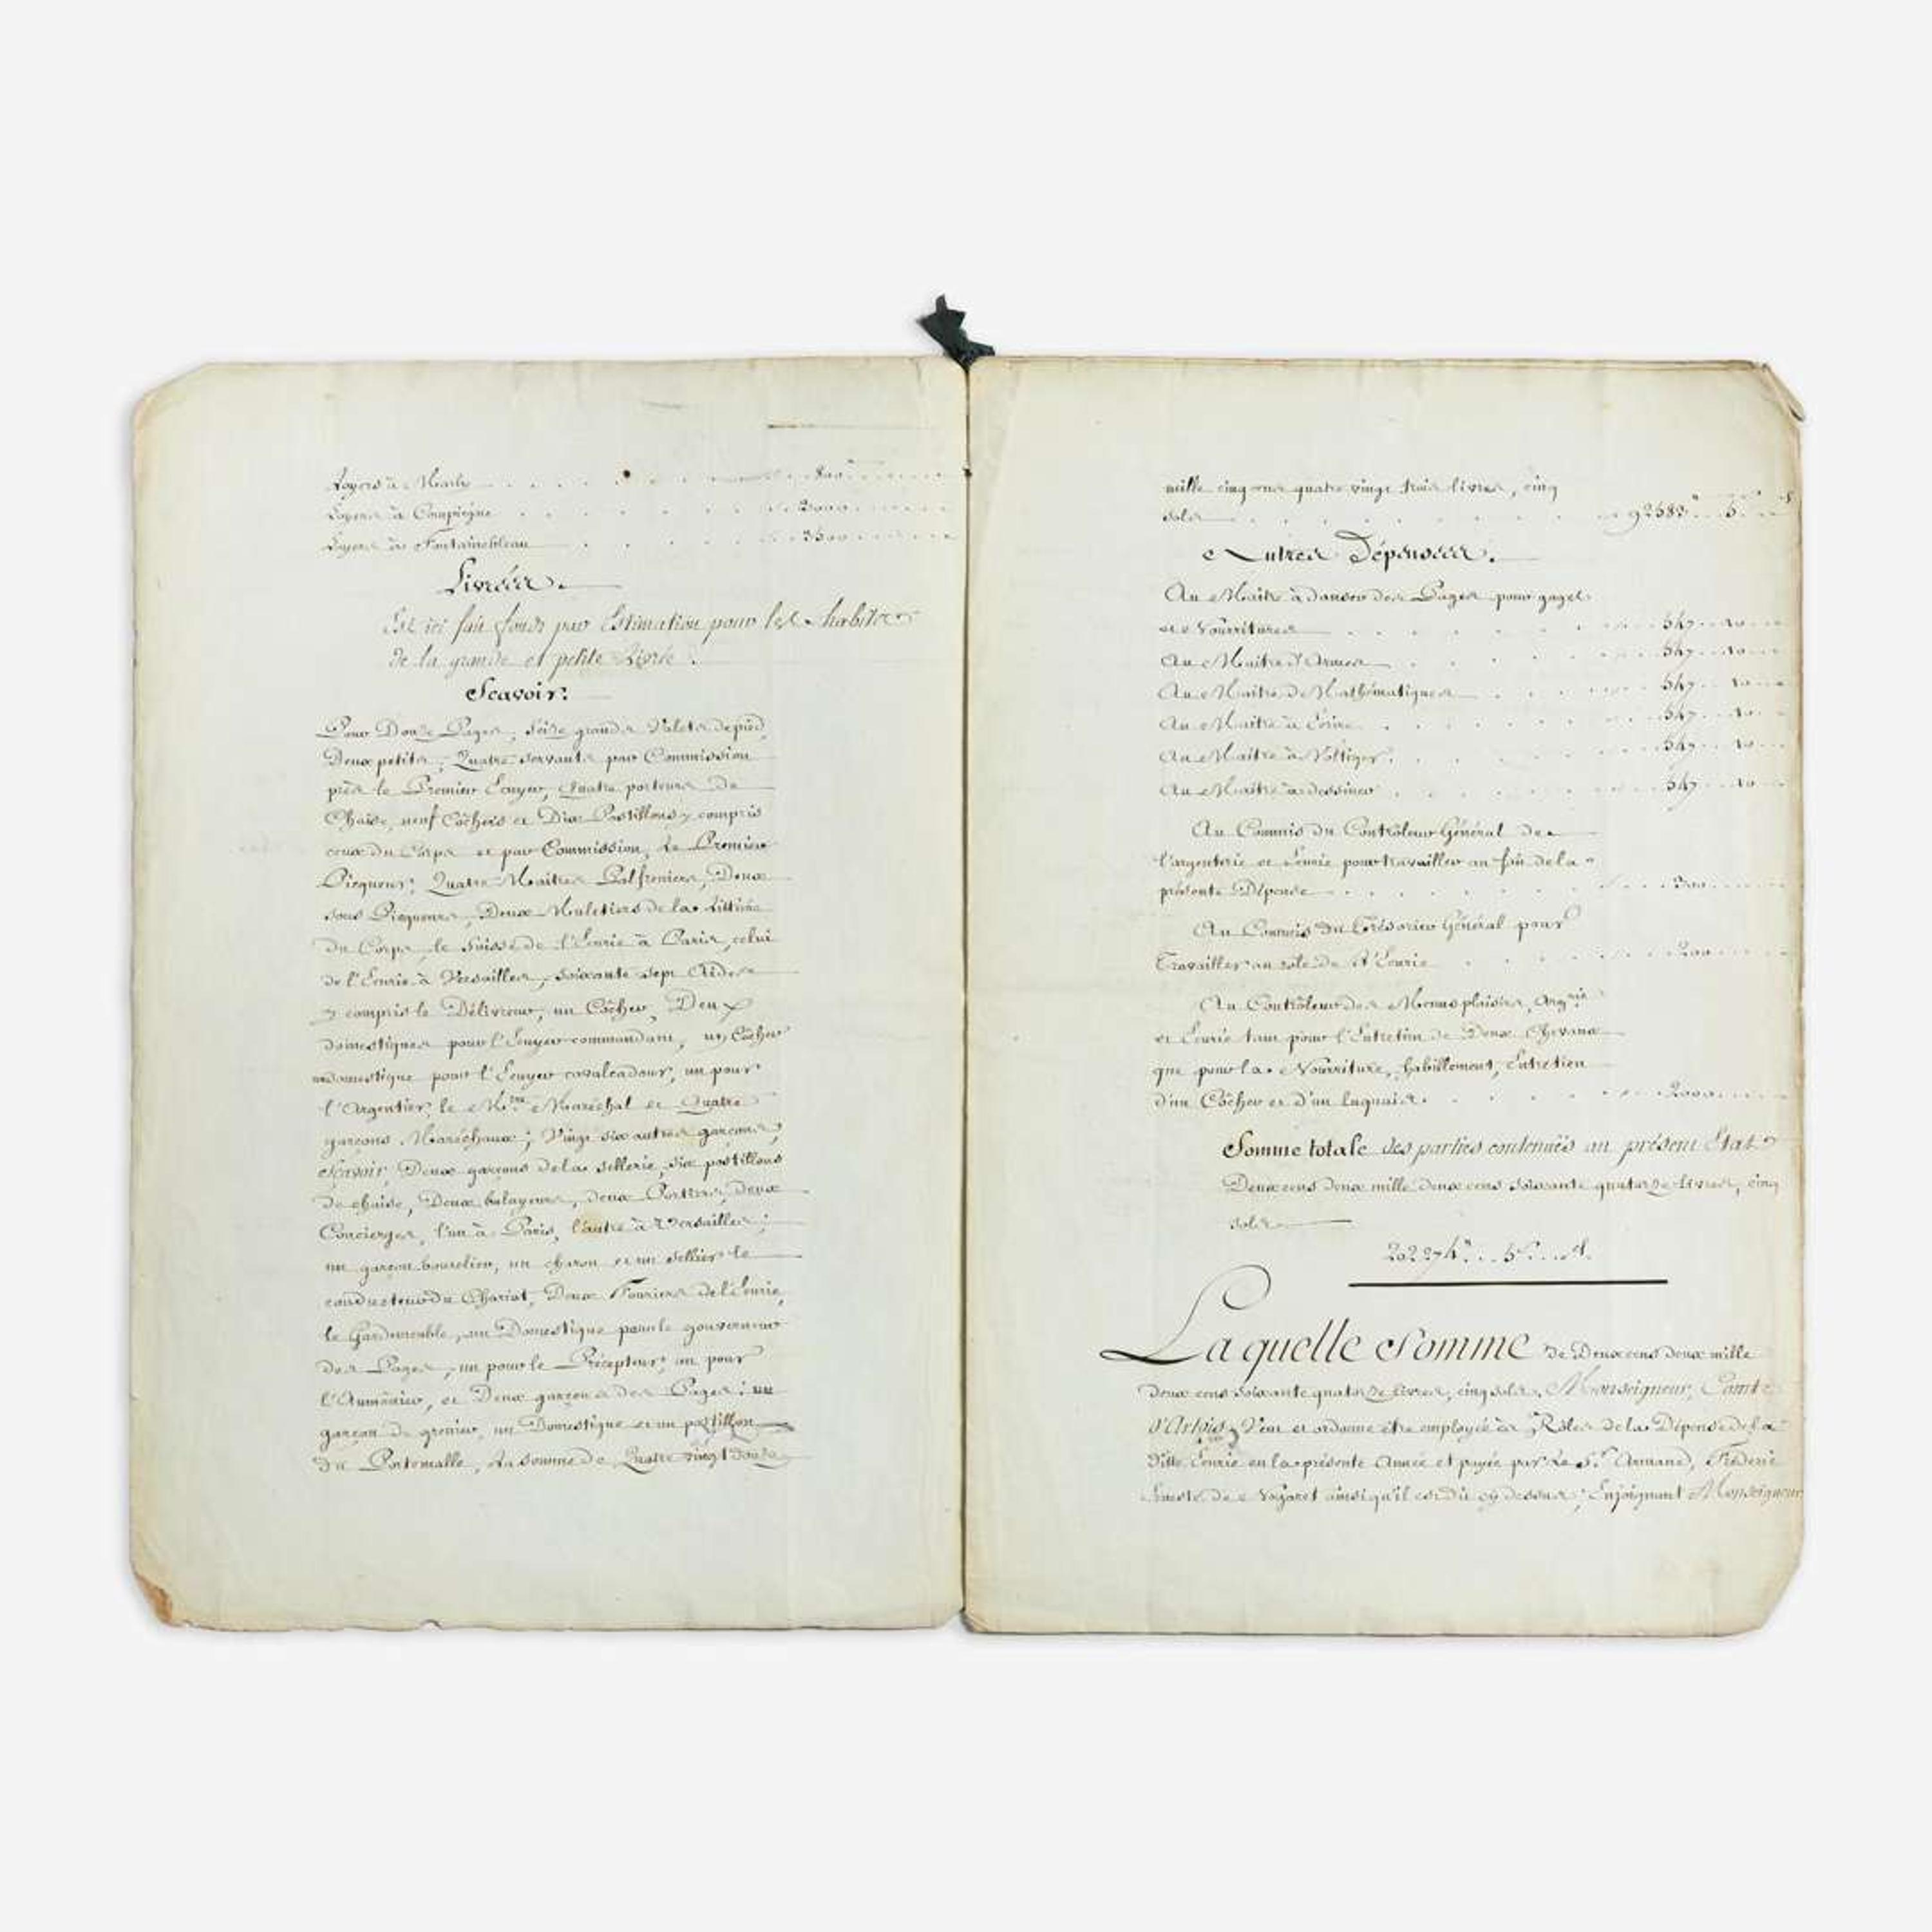 Loyers à Marly . . . . . 800
Loyers à Compiegne . . . . . 2000
Loyers à Fontainebleau . . . . . 3500
Livrées.
Est ici fait fonds par Estimation pour les habits
de la grande et petite Livrée.
Scavoir:
Pour Douze Pages, seize grands Valets de pied,
Deux petits, Quatre servants par Commission
près le Premier Ecuyer, Quatre porteurs de
Chaise, neuf Côchers et Dix Postillons y compris
ceux du Corps et par Commission, Le Premier
Picqueur, Quatre Maitres Palfreniers, Deux
sous Picqueurs, Deux Muletiers de la Littiere
du Corps, le Suisse de l'Ecurie à Paris, celui
de l'Ecurie à Versailles, soixante sept Aides
y compris le Délivreur, un Côcher, Deux
domestiques pour l'Ecuyer commandant, un Côcher
domestique pour l'Ecuyer cavalcadour, un pour
l'Argentier, le Mtre Maréchal et Quatre
garçons Maréchaux; Vingt six autres garçons,
Scavoir, Deux garçons de la sellerie, six postillons
de chaise, Deux balayeurs, deux Portiers, deux
Concierges, l'un à Paris, l'autre à Versailles;
un garçon bourelier, un charon et un sellier le
conducteur du Chariot, Deux Fouriers de l'Ecurie,
le Gardemeuble, un Domestique pour le gouverneur
des Pages, un pour le Précepteur, un pour
l'Aumônier, et Deux garçons des Pages; un
garçon de grenier, un Domestique et un postillon
du Portemalle, La somme de Quatre vingt douze
mille cinq cens quatre vingt trois livres, cinq
sols . . . . . 92583 .. 5 ..
Autres Dépenses.
Au Maitre à danser des Pages pour gages
et Nourritures . . . . . 547 .. 10
Au Maitre d'Armes . . . . . 547 .. 10
Au Maitre de Mathématiques . . . . . 547 .. 10
Au Maitre à Ecrire . . . . . 547 .. 10
Au Maitre à Voltiger . . . . . 547 .. 10
Au Maitre à dessiner . . . . . 547 .. 10
Au Commis du Contrôleur Général de
l'argenterie et Ecurie pour travailler au fait de la
présente Dépense . . . . . 300
Au Commis du Trésorier Général pour
Travailler au role de l'Ecurie . . . . . 200
Au Contrôleur des Menus plaisirs, Argrie
et Ecurie tant pour l'Entretien de Deux Chevaux
que pour la Nourriture, habillement, Entretien
d'un Côcher et d'un laquais . . . . . 2000
Somme totale des parties contenuës au présent Etat
Deux cens deux mille deux cens soixante quatorze Livres, cinq
sols
202274 .. 5 ..
Laquelle Somme de Deux cens deux mille
deux cens soixante quatorze livres, cinq sols, Monseigneur, Comte
d'Artois, Veut et ordonne être employée ès Rôles de la Dépense de sa
ditte Ecurie en la présente Année et payée par Le Sr Armand, Frédéric
Ernest de Nogaret ainsi qu'il est dit cy dessus; Enjoignant Monseigneur